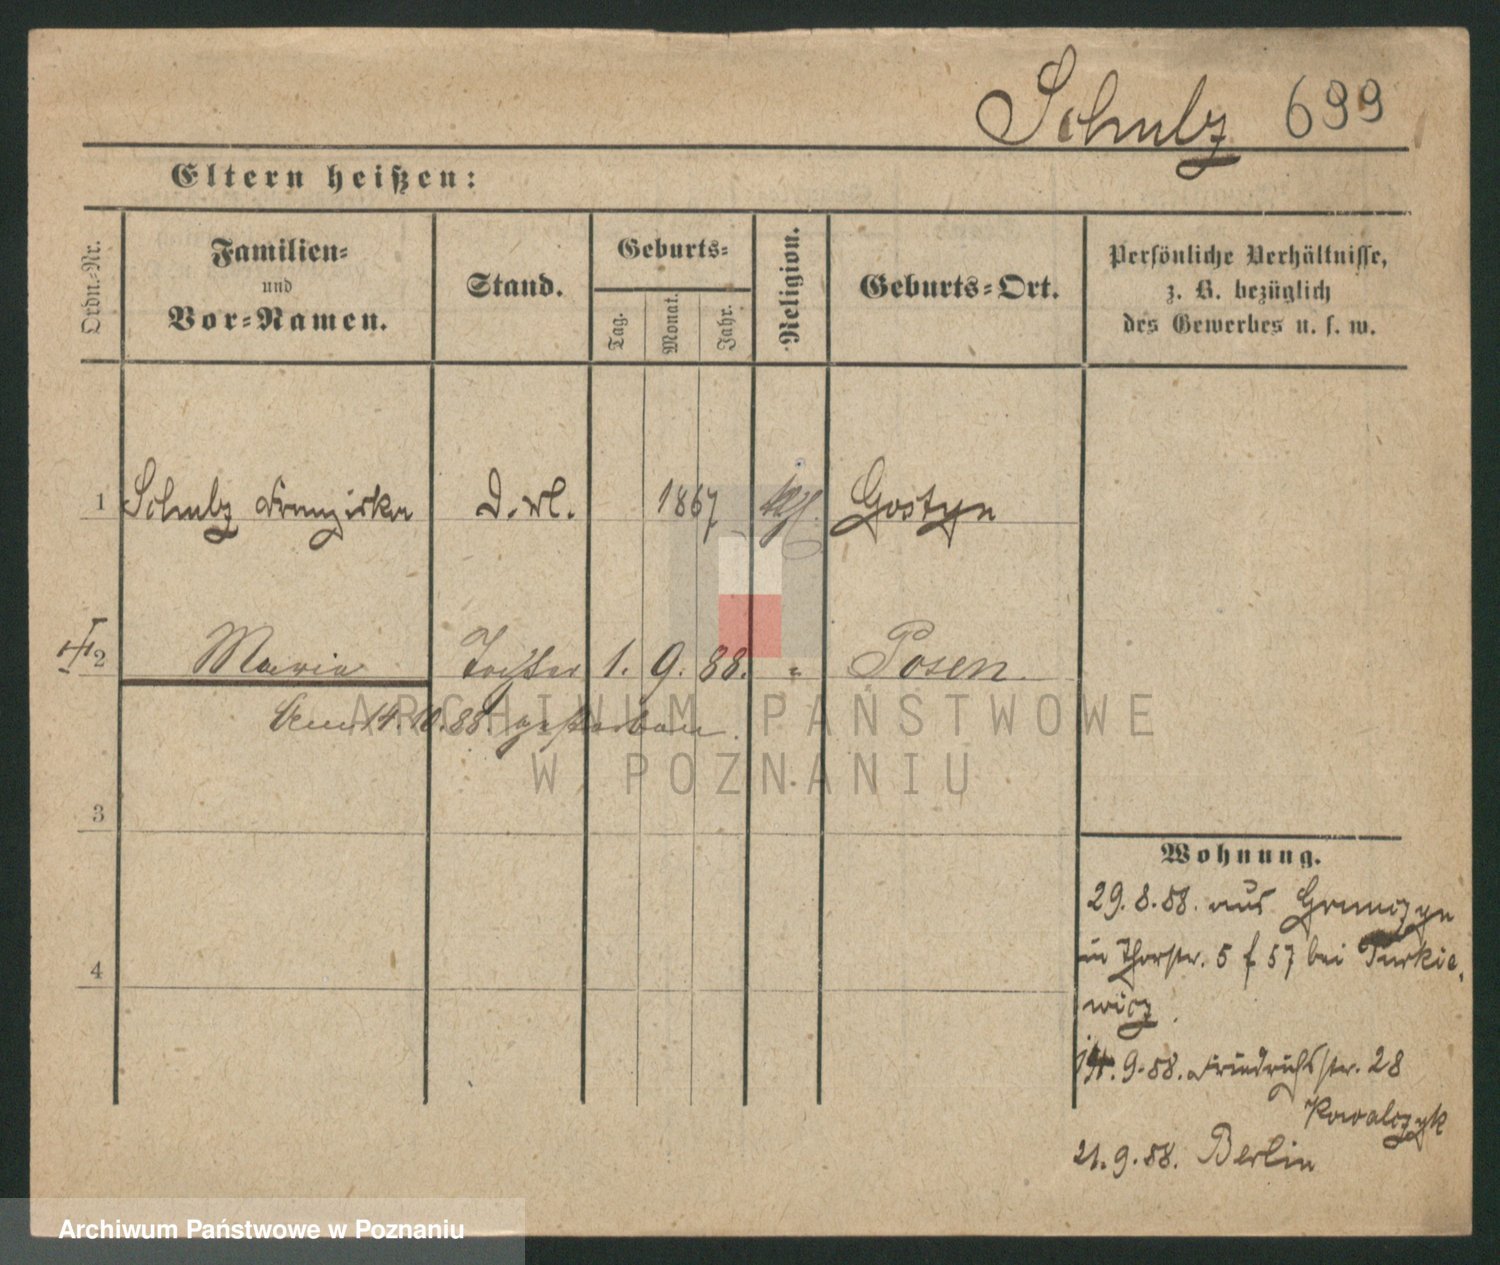 Schulz 699
Eltern heißen:
Ordn.-Nr.
Familien-
und
Vor-Namen.
Stand.
Geburts-
Tag.
Monat.
Jahr.
Religion.
Geburts-Ort.
Persönliche Verhältnisse,
z. B. bezüglich
des Gewerbes u. s. w.
1 Schulz Franziska 1867 Gostyn
2 Maria Tochter 1. 9. 88. " Posen.
Am 14.10.88. gestorben.
3
4
Wohnung.
29. 8. 88. aus
in Thorstr. 5 f 57 bei Turkie-
wicz.
9. 88. Friedrichstr. 28
Kowalczyk
21. 9. 88. Berlin
ARCHIWUM PAŃSTWOWE
W POZNANIU
Archiwum Państwowe w Poznaniu